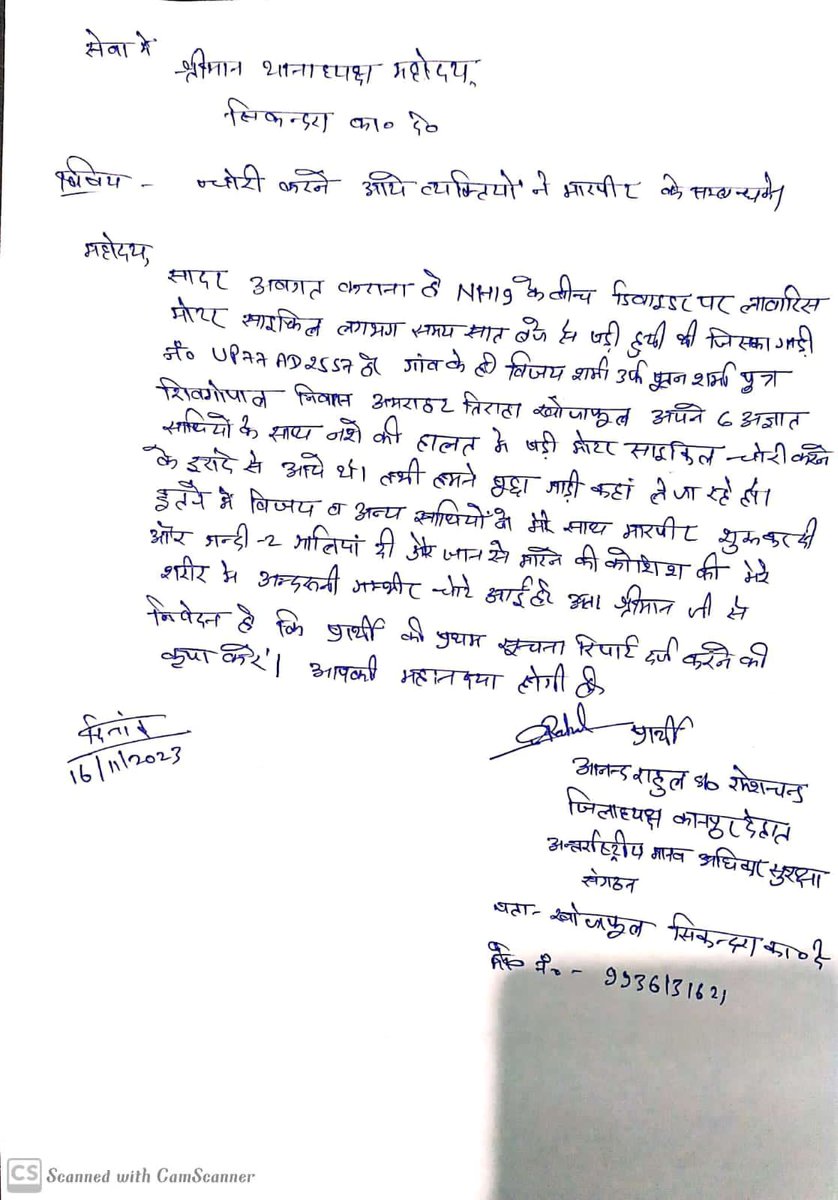 सेवा में
श्रीमान थानाध्यक्ष महोदय,
सिकन्दरा का० दे०
विषय - चोरी करने आये व्यक्तियों ने मारपीट के सम्बन्ध में।
महोदय,
सादर अवगत कराना है NH19 के बीच डिवाइडर पर लावारिस
मोटर साइकिल लगभग समय सात बजे से पड़ी हुयी थी जिसका गाड़ी
नं० UP77AD2557 है। गांव के ही विजय शर्मा उर्फ पूतन शर्मा पुत्र
शिवगोपाल निवास अमराहट तिराहा खोजाफूल अपने 6 अज्ञात
साथियों के साथ नशे की हालत में पड़ी मोटर साइकिल चोरी करने
के इरादे से आये थे। तभी हमने पूछा गाड़ी कहां ले जा रहे हो।
इतने में विजय व अन्य साथियों के मेरे साथ मारपीट शुरू कर दी
और गन्दी-2 गालियां दी और जान से मारने की कोशिश की मेरे
शरीर में अन्दरूनी गम्भीर चोटे आई है। अतः श्रीमान जी से
निवेदन है कि प्रार्थी की प्रथम सूचना रिपोर्ट दर्ज करने की
कृपा करें। आपकी महान दया होगी
दिनांक
16/11/2023
Rahul प्रार्थी
आनन्द राहुल S/o रमेशचन्द्र
जिलाध्यक्ष कानपुर देहात
अन्तर्राष्ट्रीय मानव अधिकार सुरक्षा
संगठन
पता - खोजाफूल सिकन्दरा का० दे
मो० नं० - 9936131621
CS Scanned with CamScanner